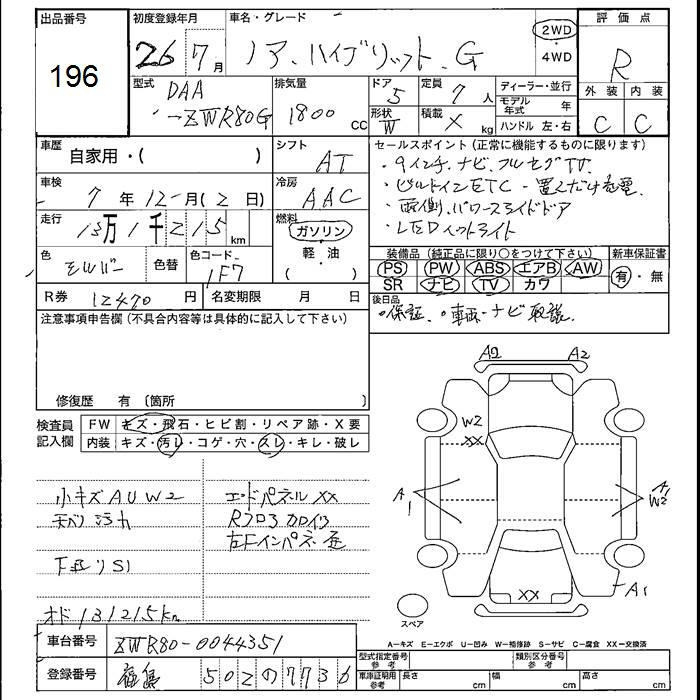 出品番号
196
初度登録年月
26 7 月
車名・グレード
ノア.ハイブリット.G
2WD
・
4WD
評価点
R
外装 内装
C C
型式
DAA
-ZWR80G
排気量
1800 cc
ドア
5
形状
W
定員
7 人
積載
X kg
ディーラー・並行
モデル年式 年
ハンドル 左・右
車歴
自家用・( )
シフト
AT
車検
7 年 12 月 ( 2 日)
冷房
AAC
走行
13万1千215 km
燃料
ガソリン
・
軽・油
( )
色
色替
色コード
1F7
R券 12470 円
名変期限 月 日
セールスポイント (正常に機能するものに限ります)
・9インチ.ナビ.フルセグTV.
・ビルトインETC
・両側.パワースライドドア
装備品 (純正品に限り○をつけて下さい)
PS PW ABS エアB AW
SR ナビ TV カワ
新車保証書
有・無
後日品
・保証.・車両・ナビ取説.
注意事項申告欄 (不具合内容等は具体的に記入して下さい)
修復歴 有 〔箇所 〕
検査員
記入欄
FW キズ・飛石・ヒビ割・リペア跡・X要
内装 キズ・汚レ・コゲ・穴・スレ・キレ・破レ
小キズAUW2
下廻りS1
オド131215km
エンドパネルXX
A2 A2
W2
XX
A1
A1
W2
XX
A1
スペア
A-キズ E-エクボ U-凹み W-補修跡 S-サビ C-腐食 XX-交換済
車台番号 ZWR80-0044351
登録番号 福島 502の7736
型式指定番号
参考
類別区分番号
参考
車庫証明用
参考
長さ cm
幅 cm
高さ cm